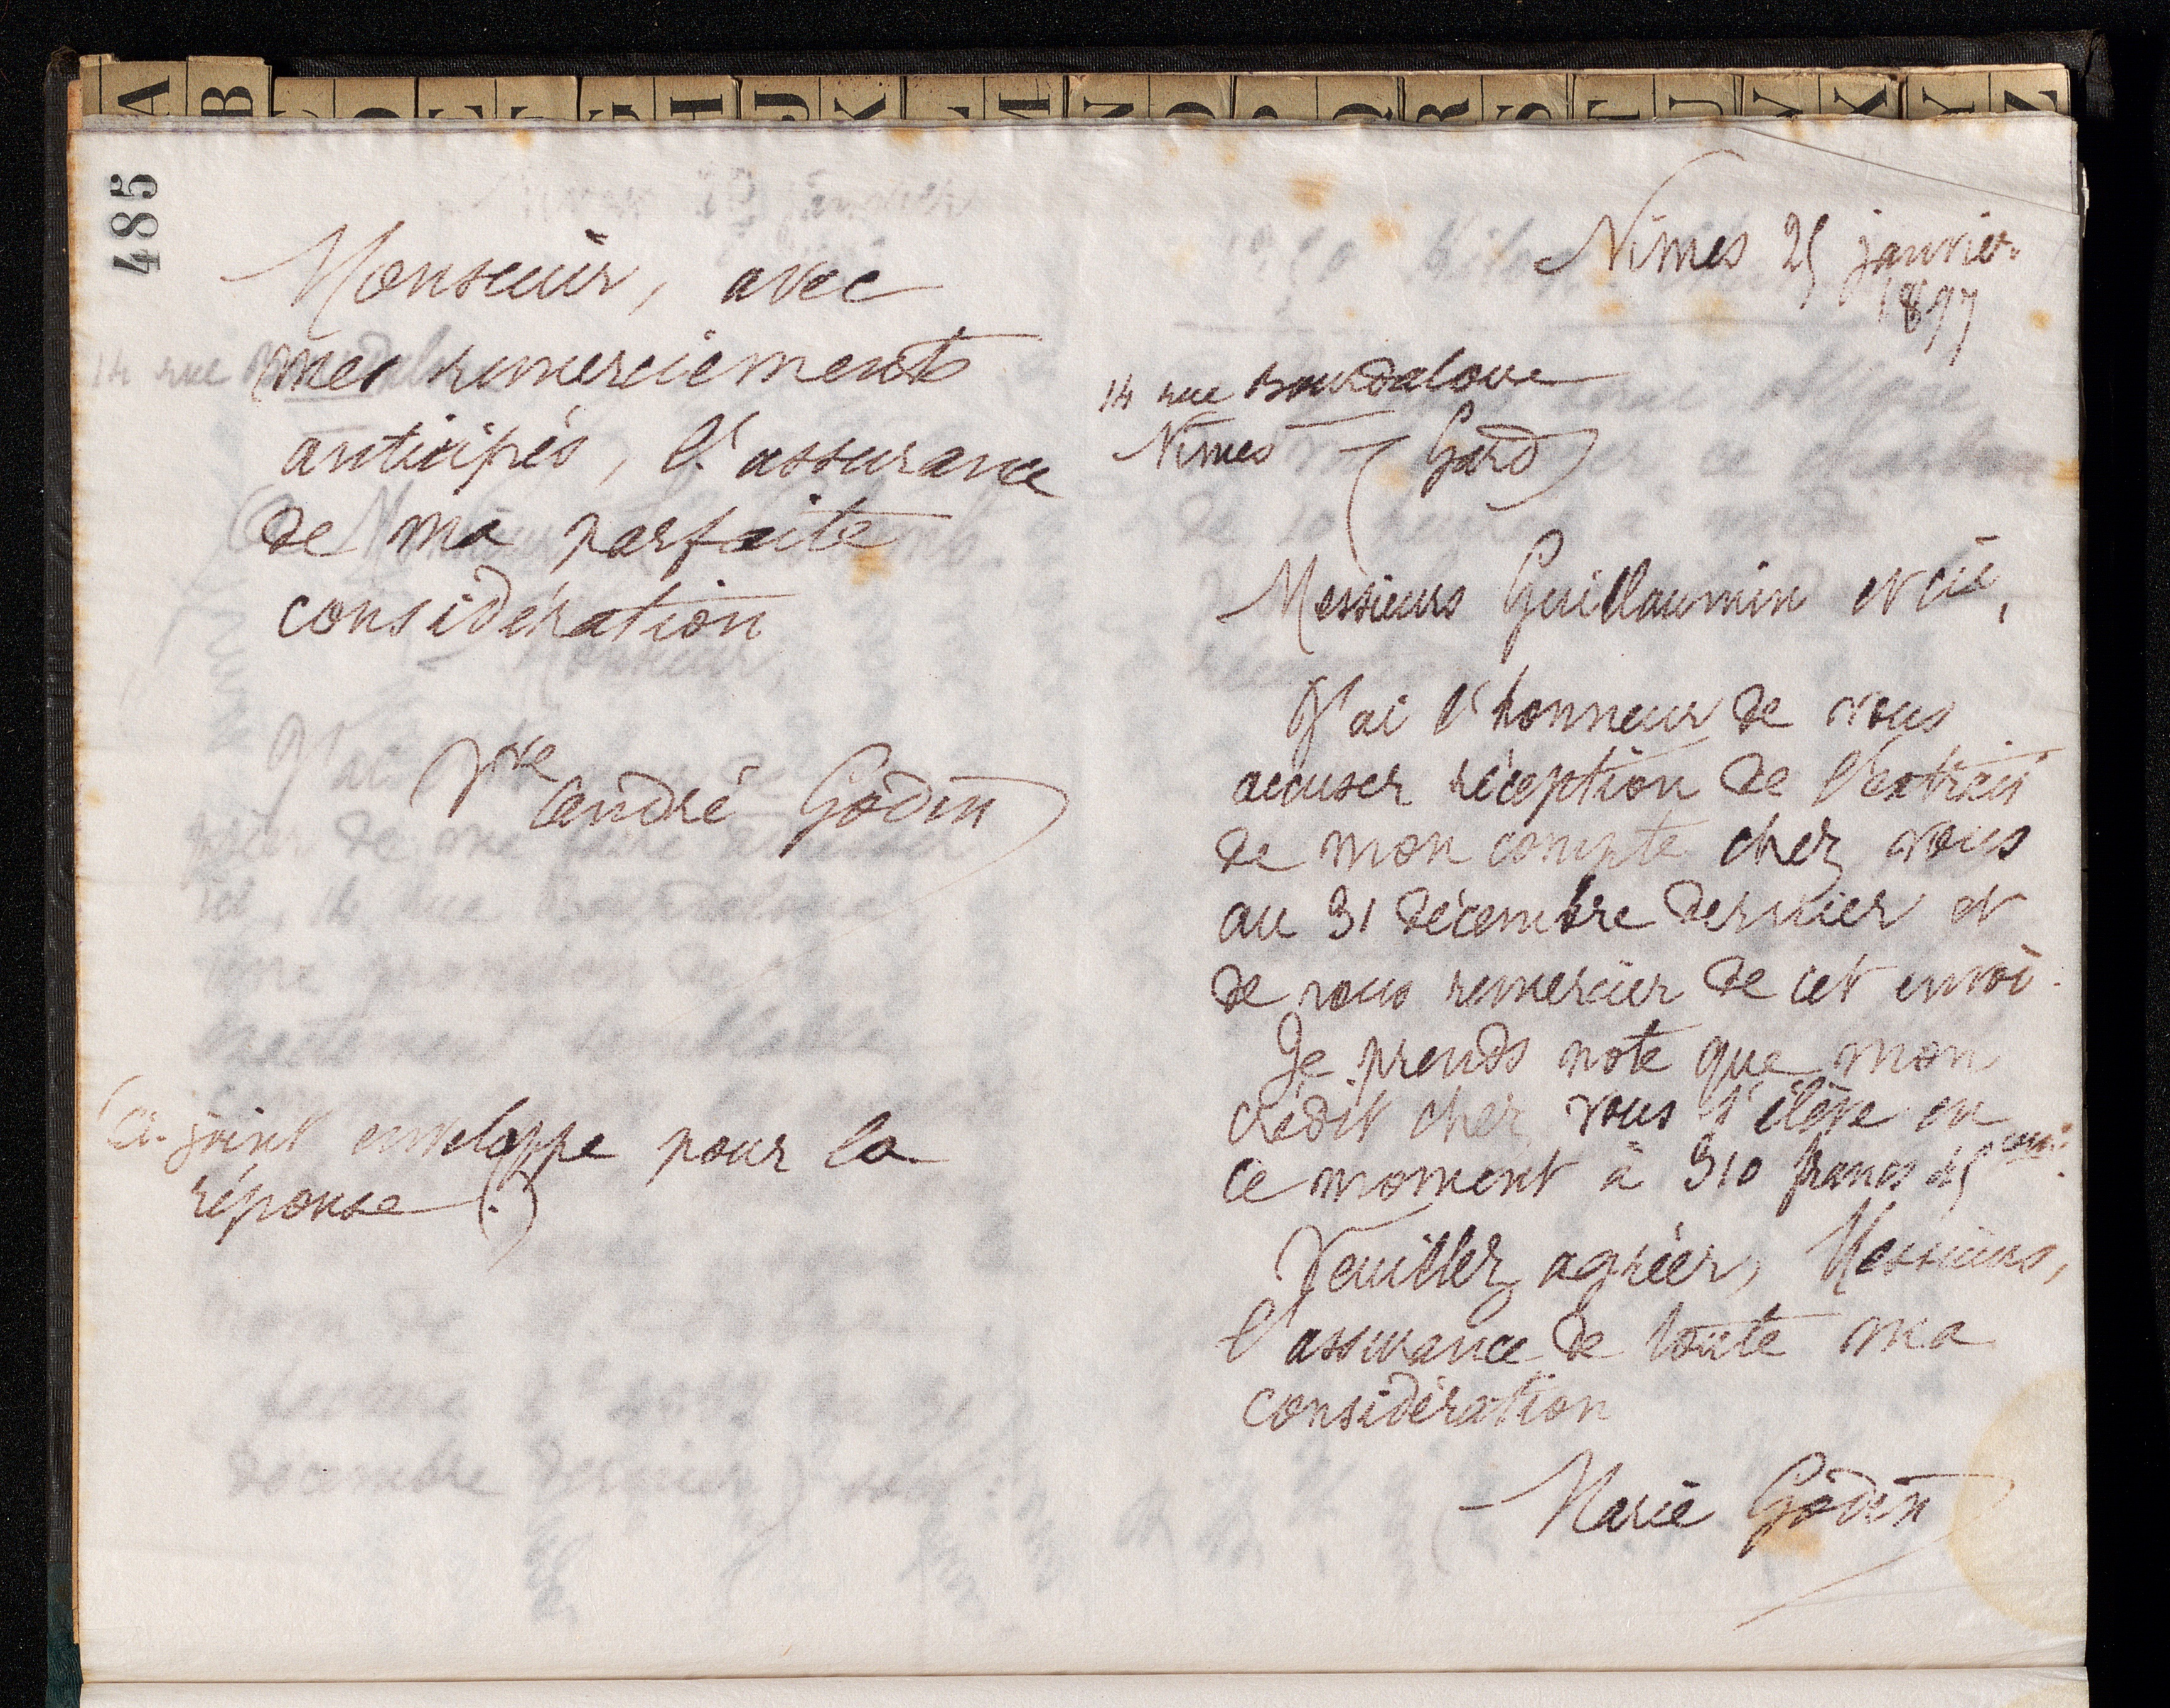 A B J K Q R S T J V X Y Z
485
Monsieur, avec
mes remerciements
anticipés, l'assurance
de ma parfaite
considération
Vve André Godin
(Ci-joint enveloppe pour la
réponse.)
Nîmes 25 janvier
1897
14 rue Bourdaloue
Nîmes (Gard)
Messieurs Guillaumin et Cie,
J'ai l'honneur de vous
accuser réception de l'extrait
de mon compte chez vous
au 31 décembre dernier et
de vous remercier de cet envoi.
Je prends note que mon
crédit chez vous s'élève en
ce moment à 310 francs
Veuillez agréer, Messieurs,
l'assurance de toute ma
considération
Marie Godin